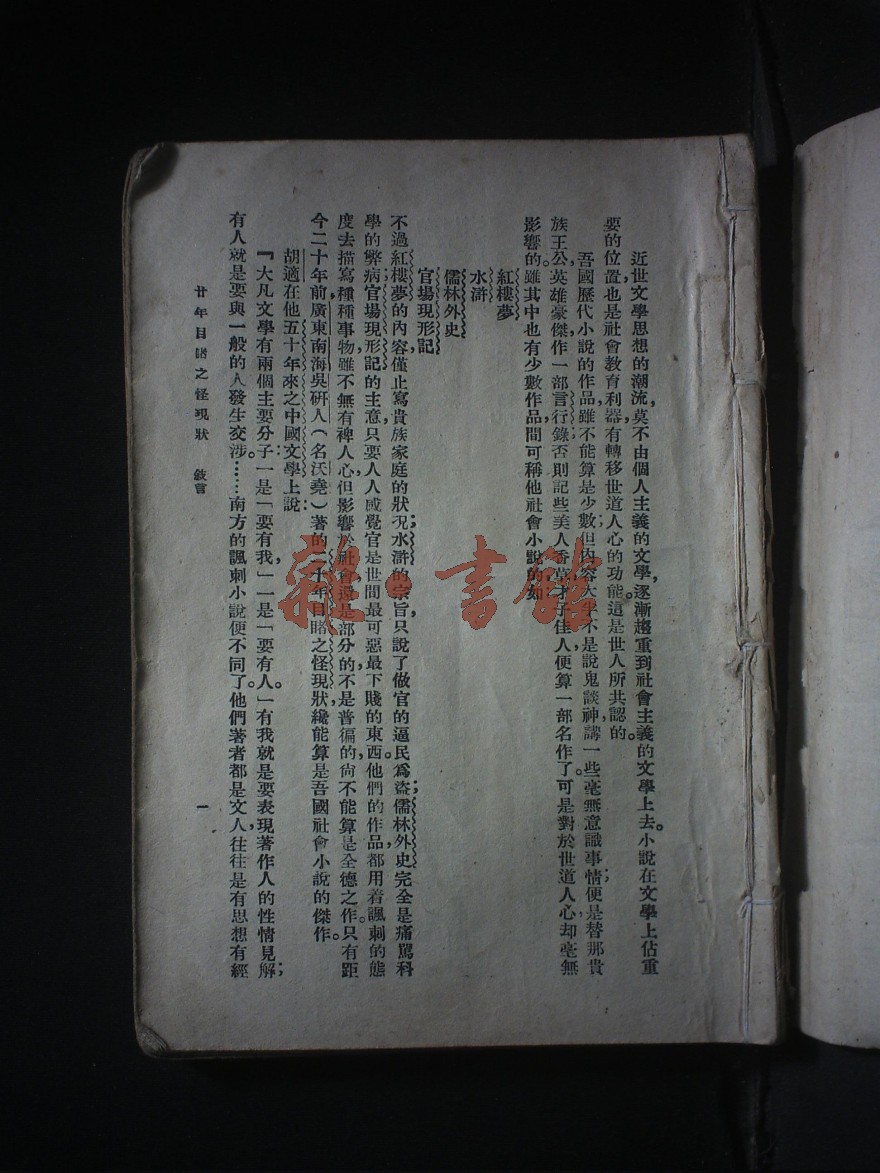 近世文學思想的潮流，莫不由個人主義的文學，逐漸趨重到社會主義的文學上去。小說在文學上佔重
要的位置，也是社會教育利器，有轉移世道人心的功能。這是世人所共認的。
吾國歷代小說的作品，雖不能算是少數；但內容大半不是說鬼談神，講一些毫無意識事情；便是替那貴
族王公，英雄豪傑，作一部言行錄；否則記些美人香草，才子佳人，便算一部名作了。可是對於世道人心，却毫無
影響的。雖其中也有少數作品，間可稱他社會小說的，如
紅樓夢
水滸
儒林外史
官場現形記
不過紅樓夢的內容，僅止寫貴族家庭的狀況；水滸的宗旨，只說了做官的逼民爲盜；儒林外史完全是痛罵科
學的弊病；官場現形記的主意，只要人人感覺官是世間最可惡最下賤的東西。他們的作品，都用着諷刺的態
度，去描寫種種事物，雖不無有裨人心，但影響於社會，還是部分的，不是普徧的，尙不能算是全德之作。只有距
今二十年前，廣東南海吳硏人（名沃堯）著的二十年目睹之怪現狀，纔能算是吾國社會小說的傑作。
胡適在他五十年來之中國文學上說：
『大凡文學有兩個主要分子：一是「要有我，」一是「要有人。」有我就是要表現著作人的性情見解；
有人就是要與一般的人發生交涉。……南方的諷刺小說便不同了。他們著者都是文人，往往是有思想有經
廿年目睹之怪現狀　敘言
一
書館